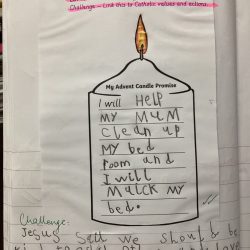 Challenge – Link this to Catholic values and actions.
My Advent Candle Promise
I will Help
my mum
clean up
my bed
room and
I will
malck my
bed.
Challenge:
Jesus sell we should be